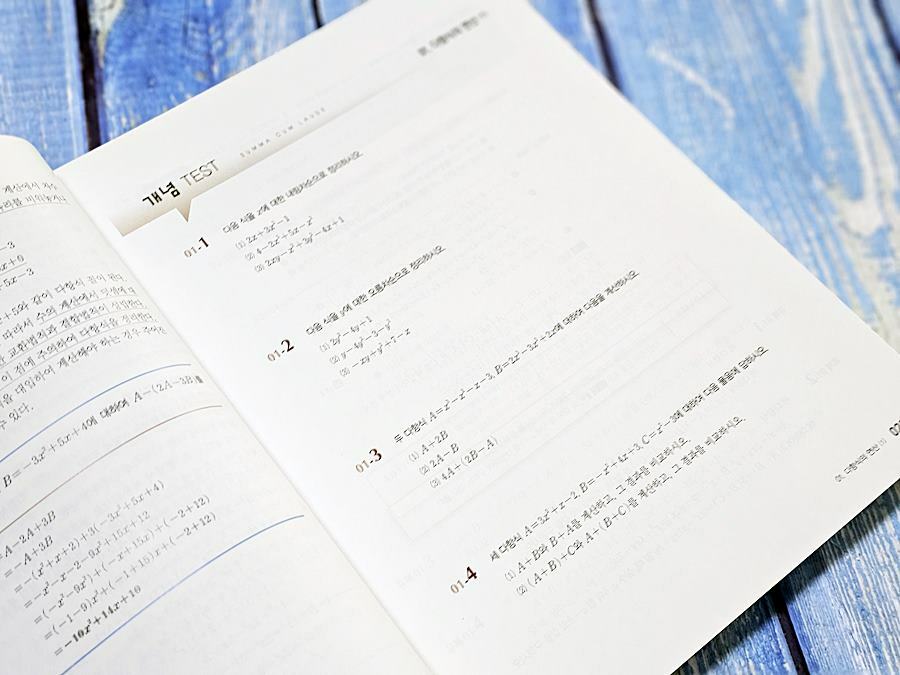 계산에서 차수
자리를 비워놓거나
-3
5x+6
+5x-3
+5와 같이 다항식 값이 된다.
따라서 수의 계산에서
교환법칙과 결합법칙이 성립한다.
이 점에 주의하여 다항식을 정리한다.
대입하여 계산해야 하는 경우
수 있다.
B=-3x²+5x+4에 대하여 A-(2A-3B)를
=A-2A+3B
=-A+3B
=-(x²+x+2)+3(-3x²+5x+4)
=-x²-x-2-9x²+15x+12
=(-x²-9x²)+(-x+15x)+(-2+12)
=(-1-9)x²+(-1+15)x+(-2+12)
=-10x²+14x+10
개념 TEST
SUMMA CUM LAUDE
01-1
다음 식을 x에 대한 내림차순으로 정리하시오.
(1) 2x+3x²-1
(2) 4-2x²+5x-x³
(3) 2xy-x²+3y²-4x+1
01-2
다음 식을 y에 대한 오름차순으로 정리하시오.
(1) 2y²-4y-1
(2) y-4y²-3-y³
(3) -xy+y²+1-x
01-3
두 다항식 A=x³-x²-x-3, B=2x³-3x²+2x에 대하여 다음을 계산하시오.
(1) A+2B
(2) 2A-B
(3) 4A+(2B-A)
01-4
세 다항식 A=3x²+x-2, B=-x²+4x-3, C=x²-3에 대하여 다음 물음에 답하시오.
(1) A+B와 B+A를 계산하고, 그 결과를 비교하시오.
(2) (A+B)+C와 A+(B+C)를 계산하고, 그 결과를 비교하시오.
01. 다항식의 연산 (1)